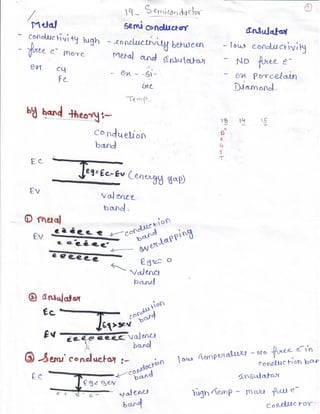 19- Semiconductor
1
Metal
Semi conductor
Insulator
- conductivity high
- conductivity between Metal and Insulator
- low conductivity
- free e⁻ more
- NO free e⁻
ex cu
Fe
- ex - Si-
Ge
- ex porcelain
Diamond.
Temp.
by band theory:-
13 14 15
conduction
band
EC
Eg = Ec-Ev (energy gap)
EV
valence
band.
① metal
conduction
band
EV
overlapping
Eg = 0
valence
band
② Insulator
EC
conduction
band
Eg>5ev
EV
valence
band
③ Semi conductor :-
low temperature - No free e⁻ in
conduction ban
EC
conduction
band
Insulator
valence
band
high temp - more free e⁻
conductor.